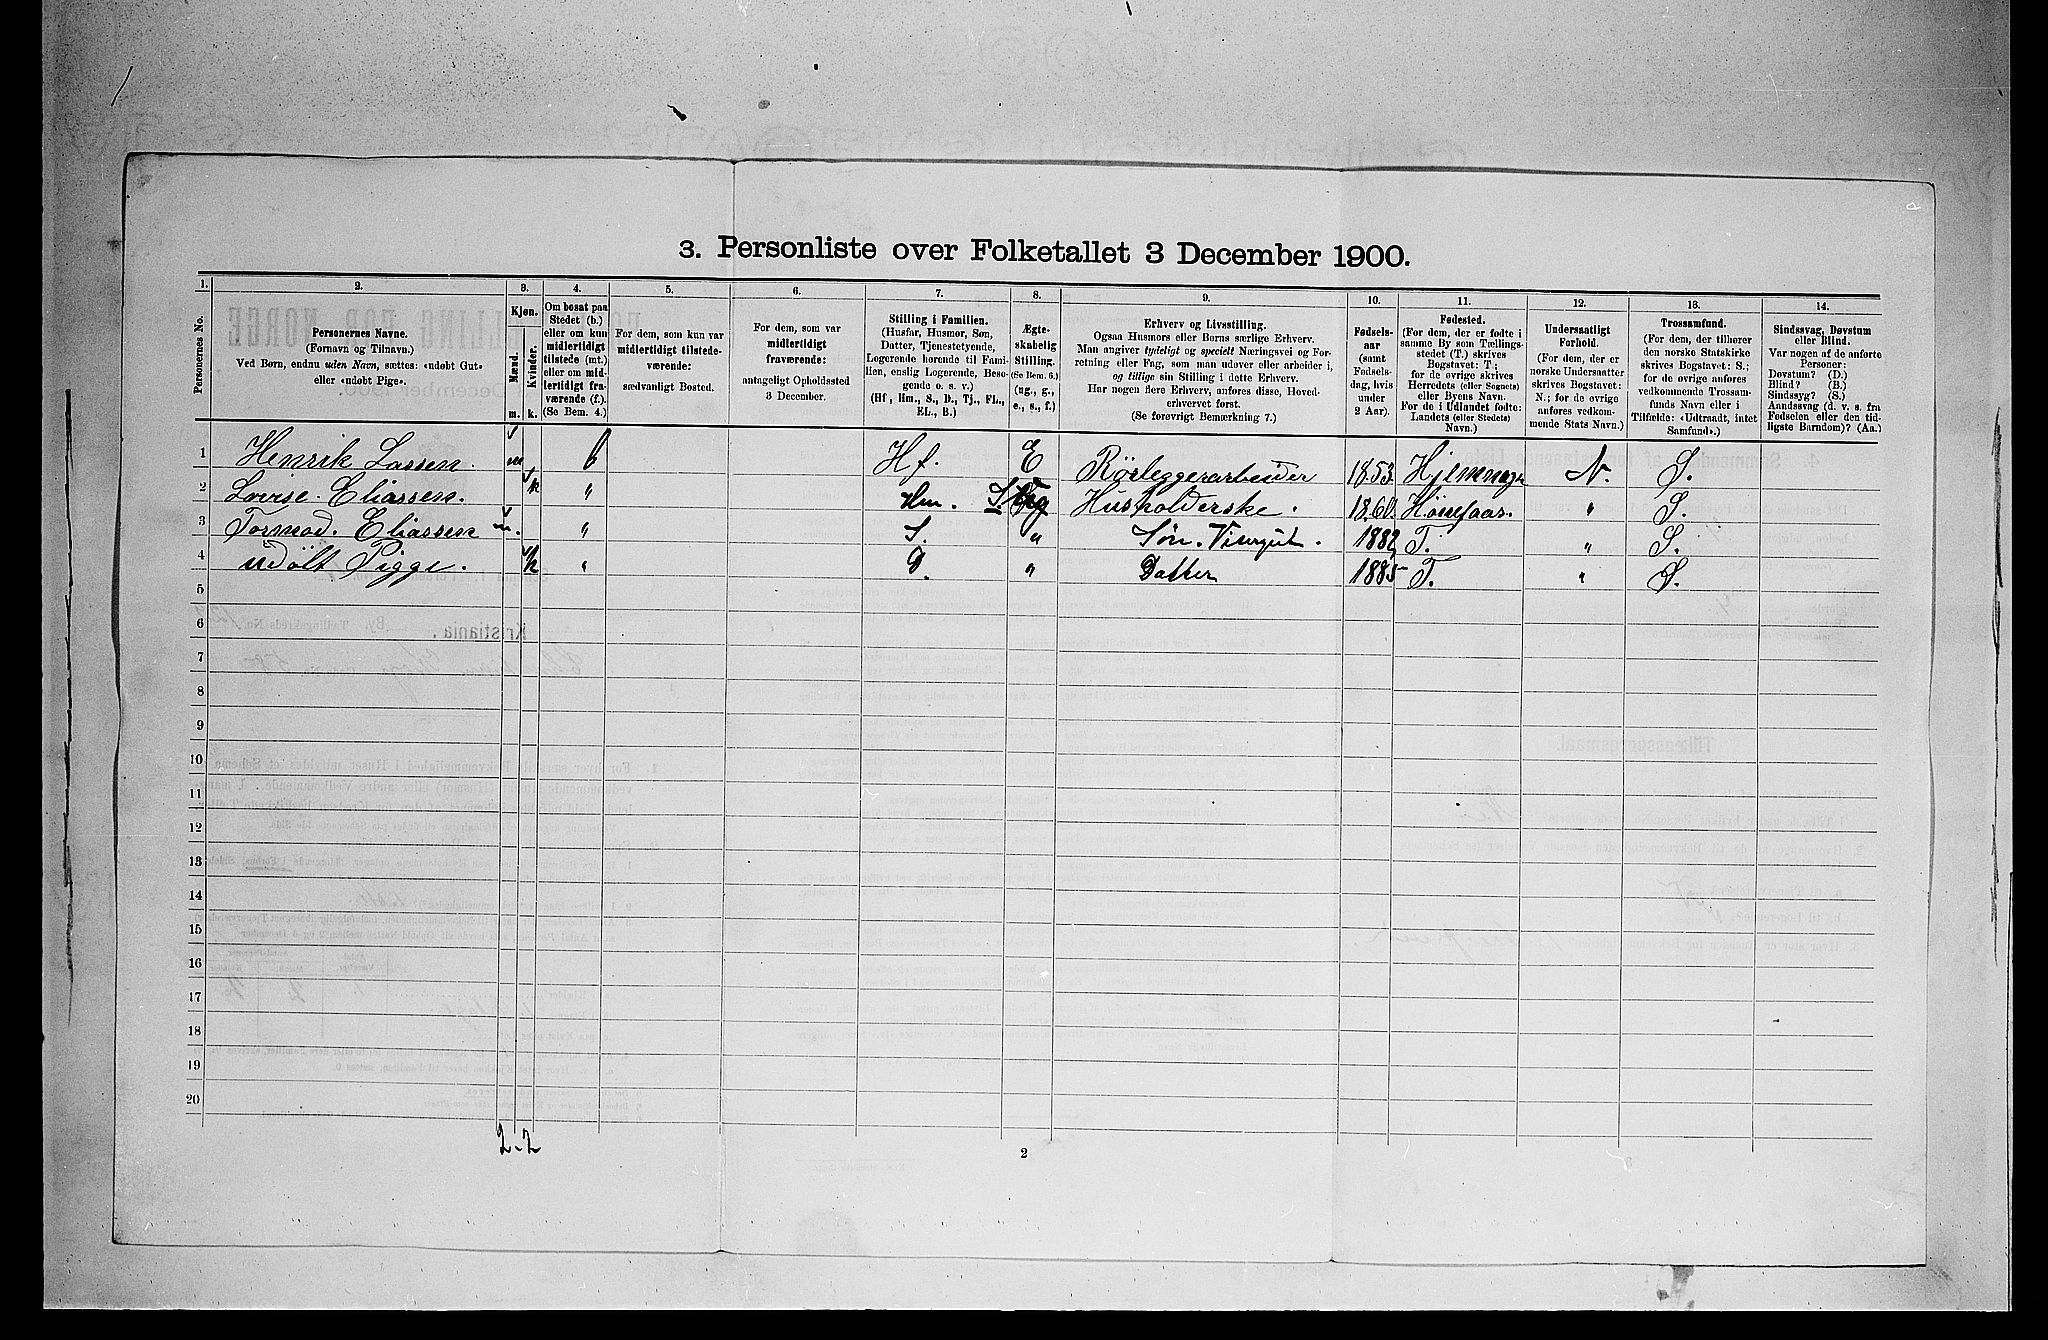 3. Personliste over Folketallet 3 December 1900.
1. 2. 3. 4. 5. 6. 7. 8. 9. 10. 11. 12. 13. 14.
Personernes No.
Personernes Navne.
(Fornavn og Tilnavn.)
Ved Børn, endnu uden Navn, sættes: «udøbt Gut»
eller «udøbt Pige».
Kjøn.
Mænd. Kvinder.
m. k.
Om bosat paa
Stedet (b.)
eller om kun
midlertidigt
tilstede (mt.)
eller om mid-
lertidigt fra-
værende (f.).
(Se Bem. 4.)
For dem, som kun var
midlertidigt tilstede-
værende:
sædvanligt Bosted.
For dem, som var
midlertidigt
fraværende:
antageligt Opholdssted
3 December.
Stilling i Familien.
(Husfar, Husmor, Søn,
Datter, Tjenestetyende,
Logerende hørende til Fami-
lien, enslig Logerende, Besø-
gende o. s. v.)
(Hf., Hm., S., D., Tj., FL.,
EL., B.)
Ægte-
skabelig
Stilling.
(Se Bem. 6.)
(ug., g.,
e., s., f.)
Erhverv og Livsstilling.
Ogsaa Husmors eller Børns særlige Erhverv.
Man angiver tydeligt og specielt Næringsvei og For-
retning eller Fag, som man udøver eller arbeider i,
og tillige sin Stilling i dette Erhverv.
Har nogen flere Erhverv, anføres disse, Hoved-
erhvervet først.
(Se forøvrigt Bemærkning 7.)
Fødsels-
aar
(samt
Fødsels-
dag, hvis
under
2 Aar).
Fødested.
(For dem, der er fødte i
samme By som Tællings-
stedet (T.) skrives
Bogstavet: T.;
for de øvrige skrives
Herredets (eller Sognets)
eller Byens Navn.
For de i Udlandet fødte:
Landets (eller Stedets)
Navn.)
Undersaatligt
Forhold.
(For dem, der er
norske Undersaatter
skrives Bogstavet:
N.; for de øvrige
anføres vedkom-
mende Stats Navn.)
Trossamfund.
(For dem, der tilhører
den norske Statskirke
skrives Bogstavet: S.;
for de øvrige anføres
vedkommende Trossam-
funds Navn eller i
Tilfælde: «Udtraadt, intet
Samfund».)
Sindssvag, Døvstum
eller Blind.
Var nogen af de anførte
Personer:
Døvstum? (D.)
Blind? (B.)
Sindssyg? (S.)
Aandssvag (d. v. s. fra
Fødselen eller den tid-
ligste Barndom)? (Aa.)
1 Henrik Lassen. m b Hf. E Rörleggerarbeider 1853. N. S.
2 Lovise. Eliassen. k " Hm. Husholderske. 1860. Hönefoss. " S.
3 Tormod. Eliassen m. " S. " Sön. Visergut. 1882 T. " S.
4 udölt Pigge. k " D. " Datter 1885 T. " S.
5
6
7
8
9
10
11
12
13
14
15
16
17
18
19
20
2.2
2